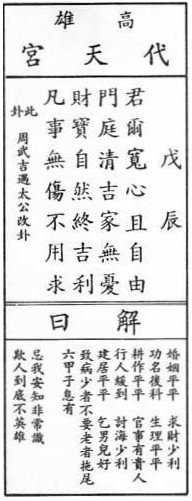 高雄
代天宮
戊辰
君爾寬心且自由
門庭清吉家無憂
財寶自然終吉利
凡事無傷不用求
此卦
周武吉遇太公改卦
解曰
婚姻平平 求財少利
功名後科 生理平平
耕作平平 官事有貴人
行人緩到 討海少利
建居平平 乞男兒好
致病少者不要老者拖尾
六甲子息有
忌我安知非常識
欺人到底不英雄